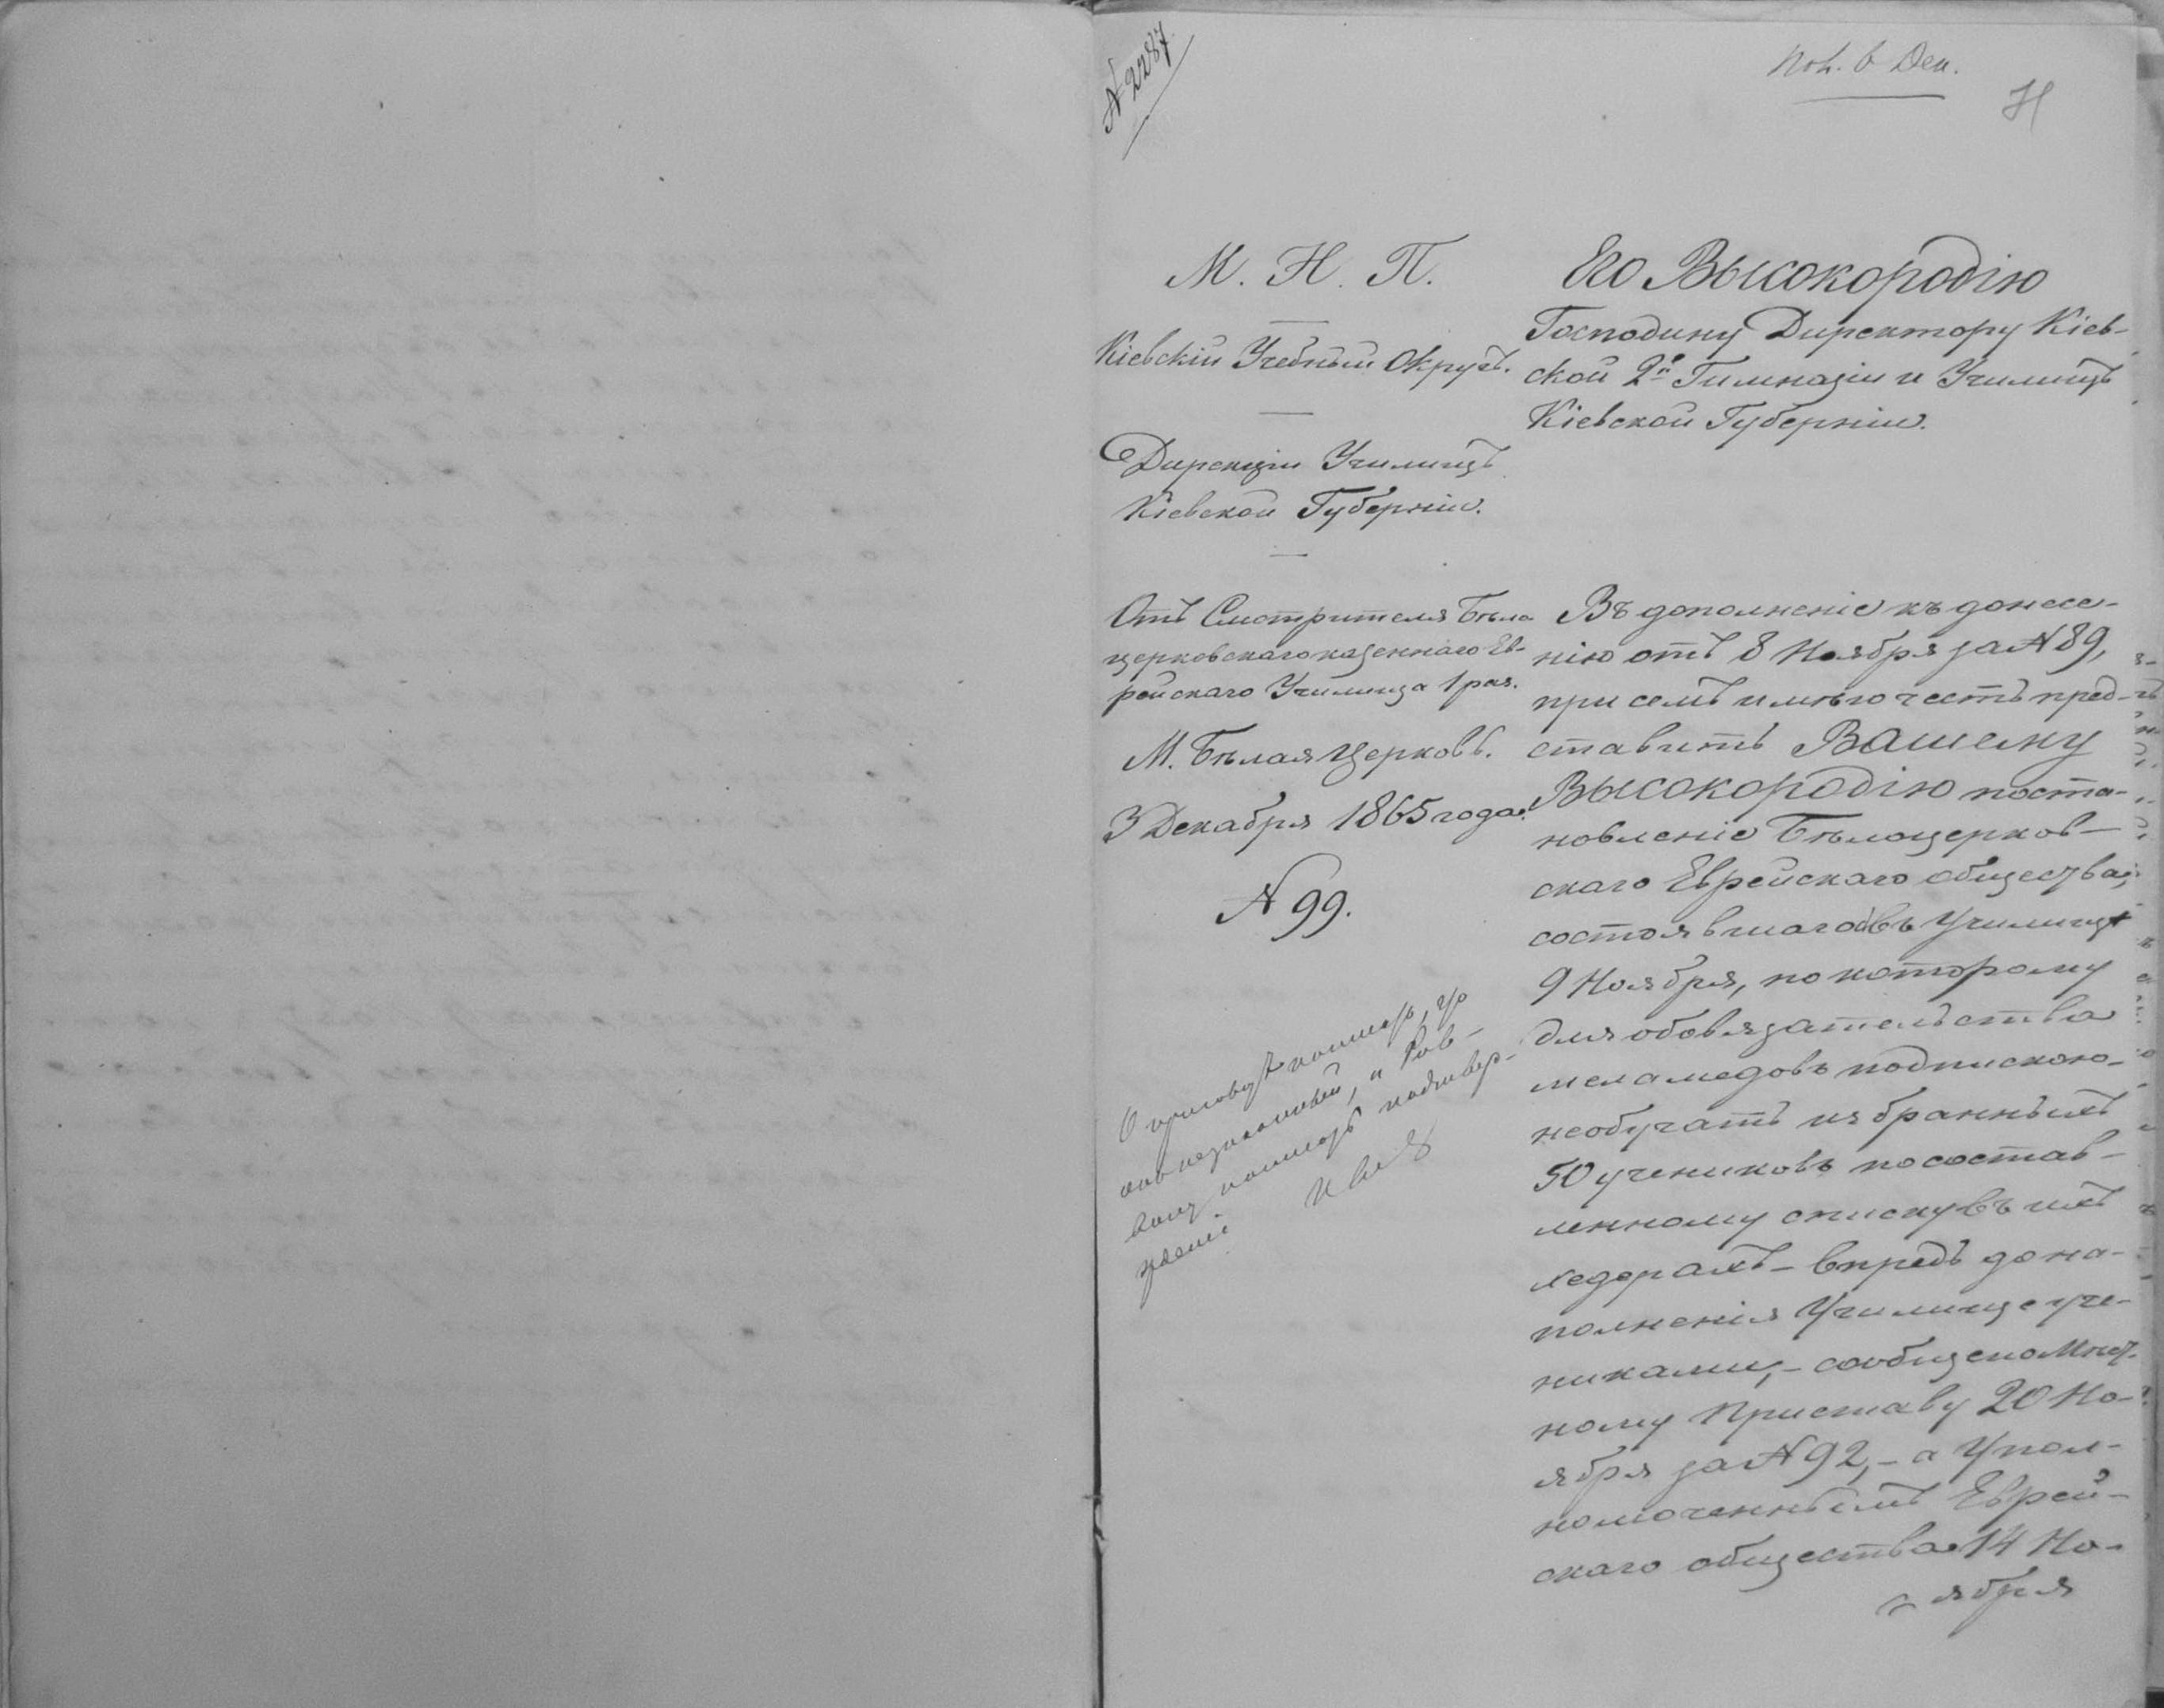 № 2287
Пол. 6 Дек.
М. Н. П.
Кіевскій Учебный Округъ.
Дирекціи Училищъ
Кіевской Губерніи.
Отъ Смотрителя Бѣло
церковскаго казеннаго Ев-
рейскаго Училища 1 раз.
М. Бѣлая Церковь.
3 Декабря 1865 года.
№ 99.
Его Высокородію
Господину Директору Кіев-
ской 2й Гимназіи и Училищъ
Кіевской Губерніи.
Въ дополненіе къ донесе-
нію отъ 8 Ноября за № 89,
при семъ имѣю честь пред-
ставить Вашему
Высокородію поста-
новленіе Бѣлоцерков-
скаго Еврейскаго общества,
состоявшагося въ Училищѣ
9 Ноября, по которому
для обовязательства
меламедовъ подпискою
необучать избранныхъ
50 учениковъ по состав-
ленному списку въ ихъ
хедерахъ – впредь до на-
полненія Училище уче-
никами, – сообщено Мѣст-
ному Приставу 20 Но-
ября за № 92, – а Упол-
номоченнымъ Еврей-
скаго общества 14 Но-
ября